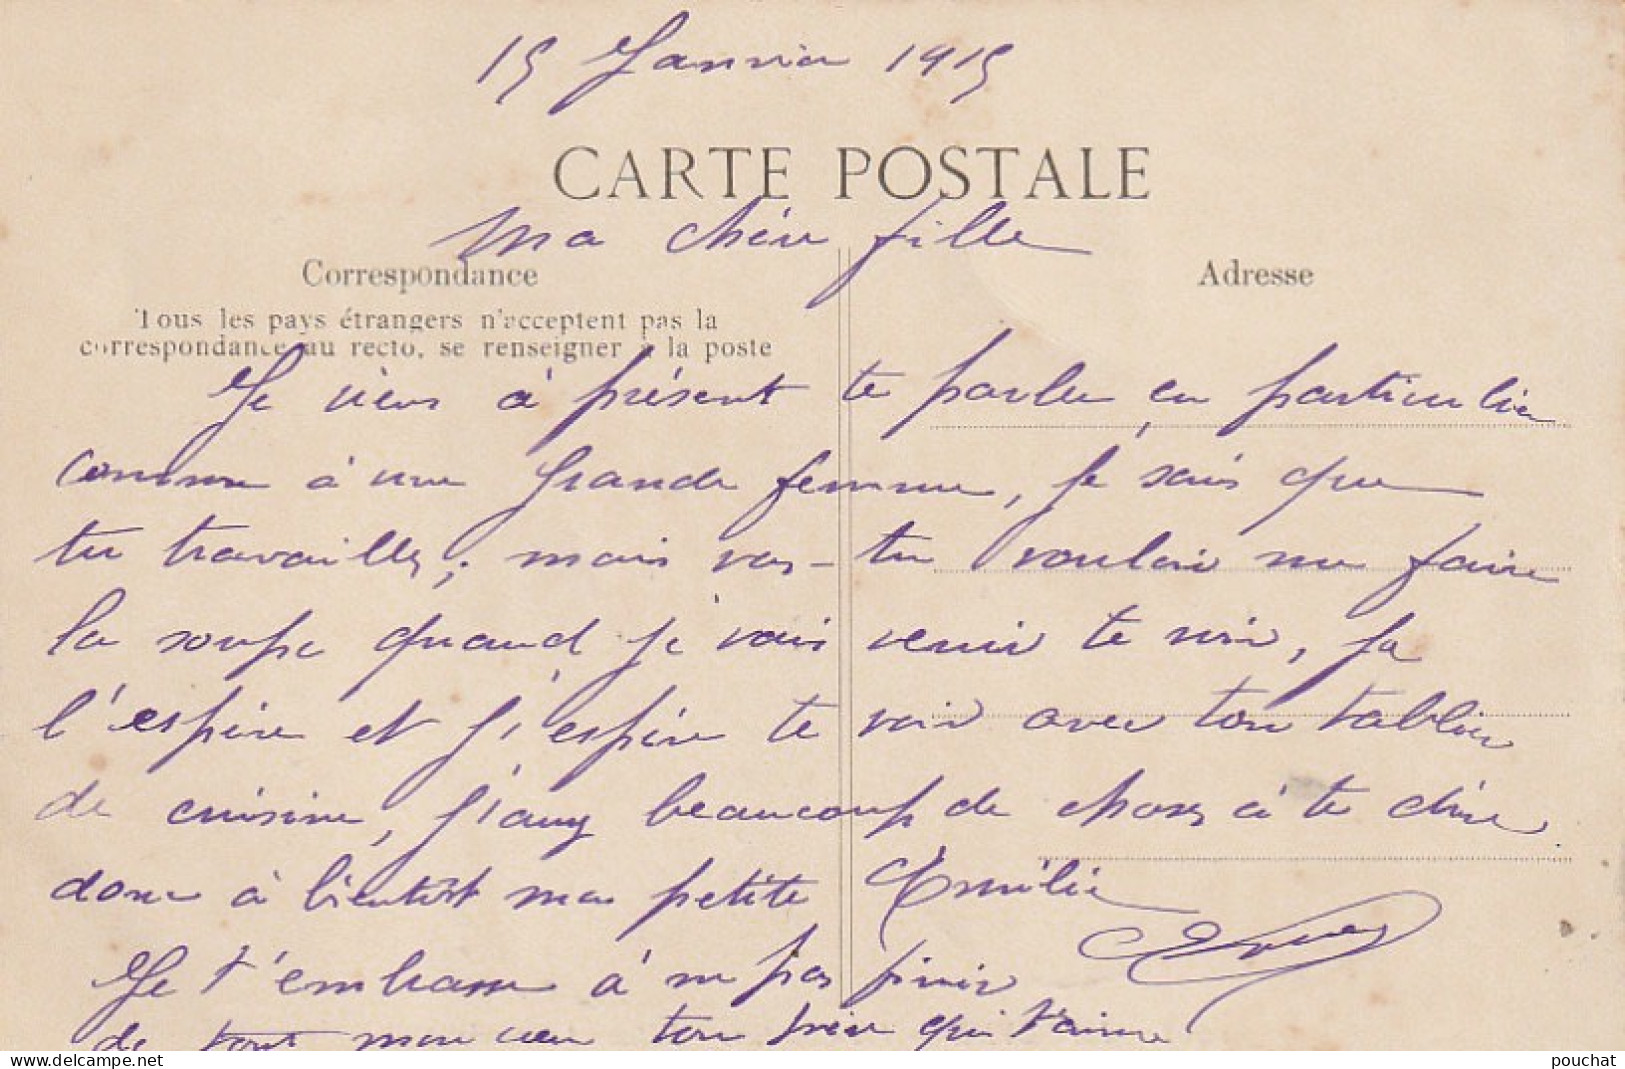 15 Janvier 1915
CARTE POSTALE
Ma chère fille
Correspondance
Adresse
Tous les pays étrangers n'acceptent pas la
correspondance au recto, se renseigner à la poste
Je viens à présent te parler en particulier
comme à une grande femme, je sais que
tu travailles, mais vas-tu vouloir me faire
la soupe quand je vais venir te voir, je
l'espère et j'espère te voir avec ton tablier
de cuisine, j'auy beaucoup de choses à te dire
donc à bientôt ma petite Emilie
Je t'embrasse à ne pas finir
de tout mon cœur ton père qui t'aime
pouchat
www.delcampe.net